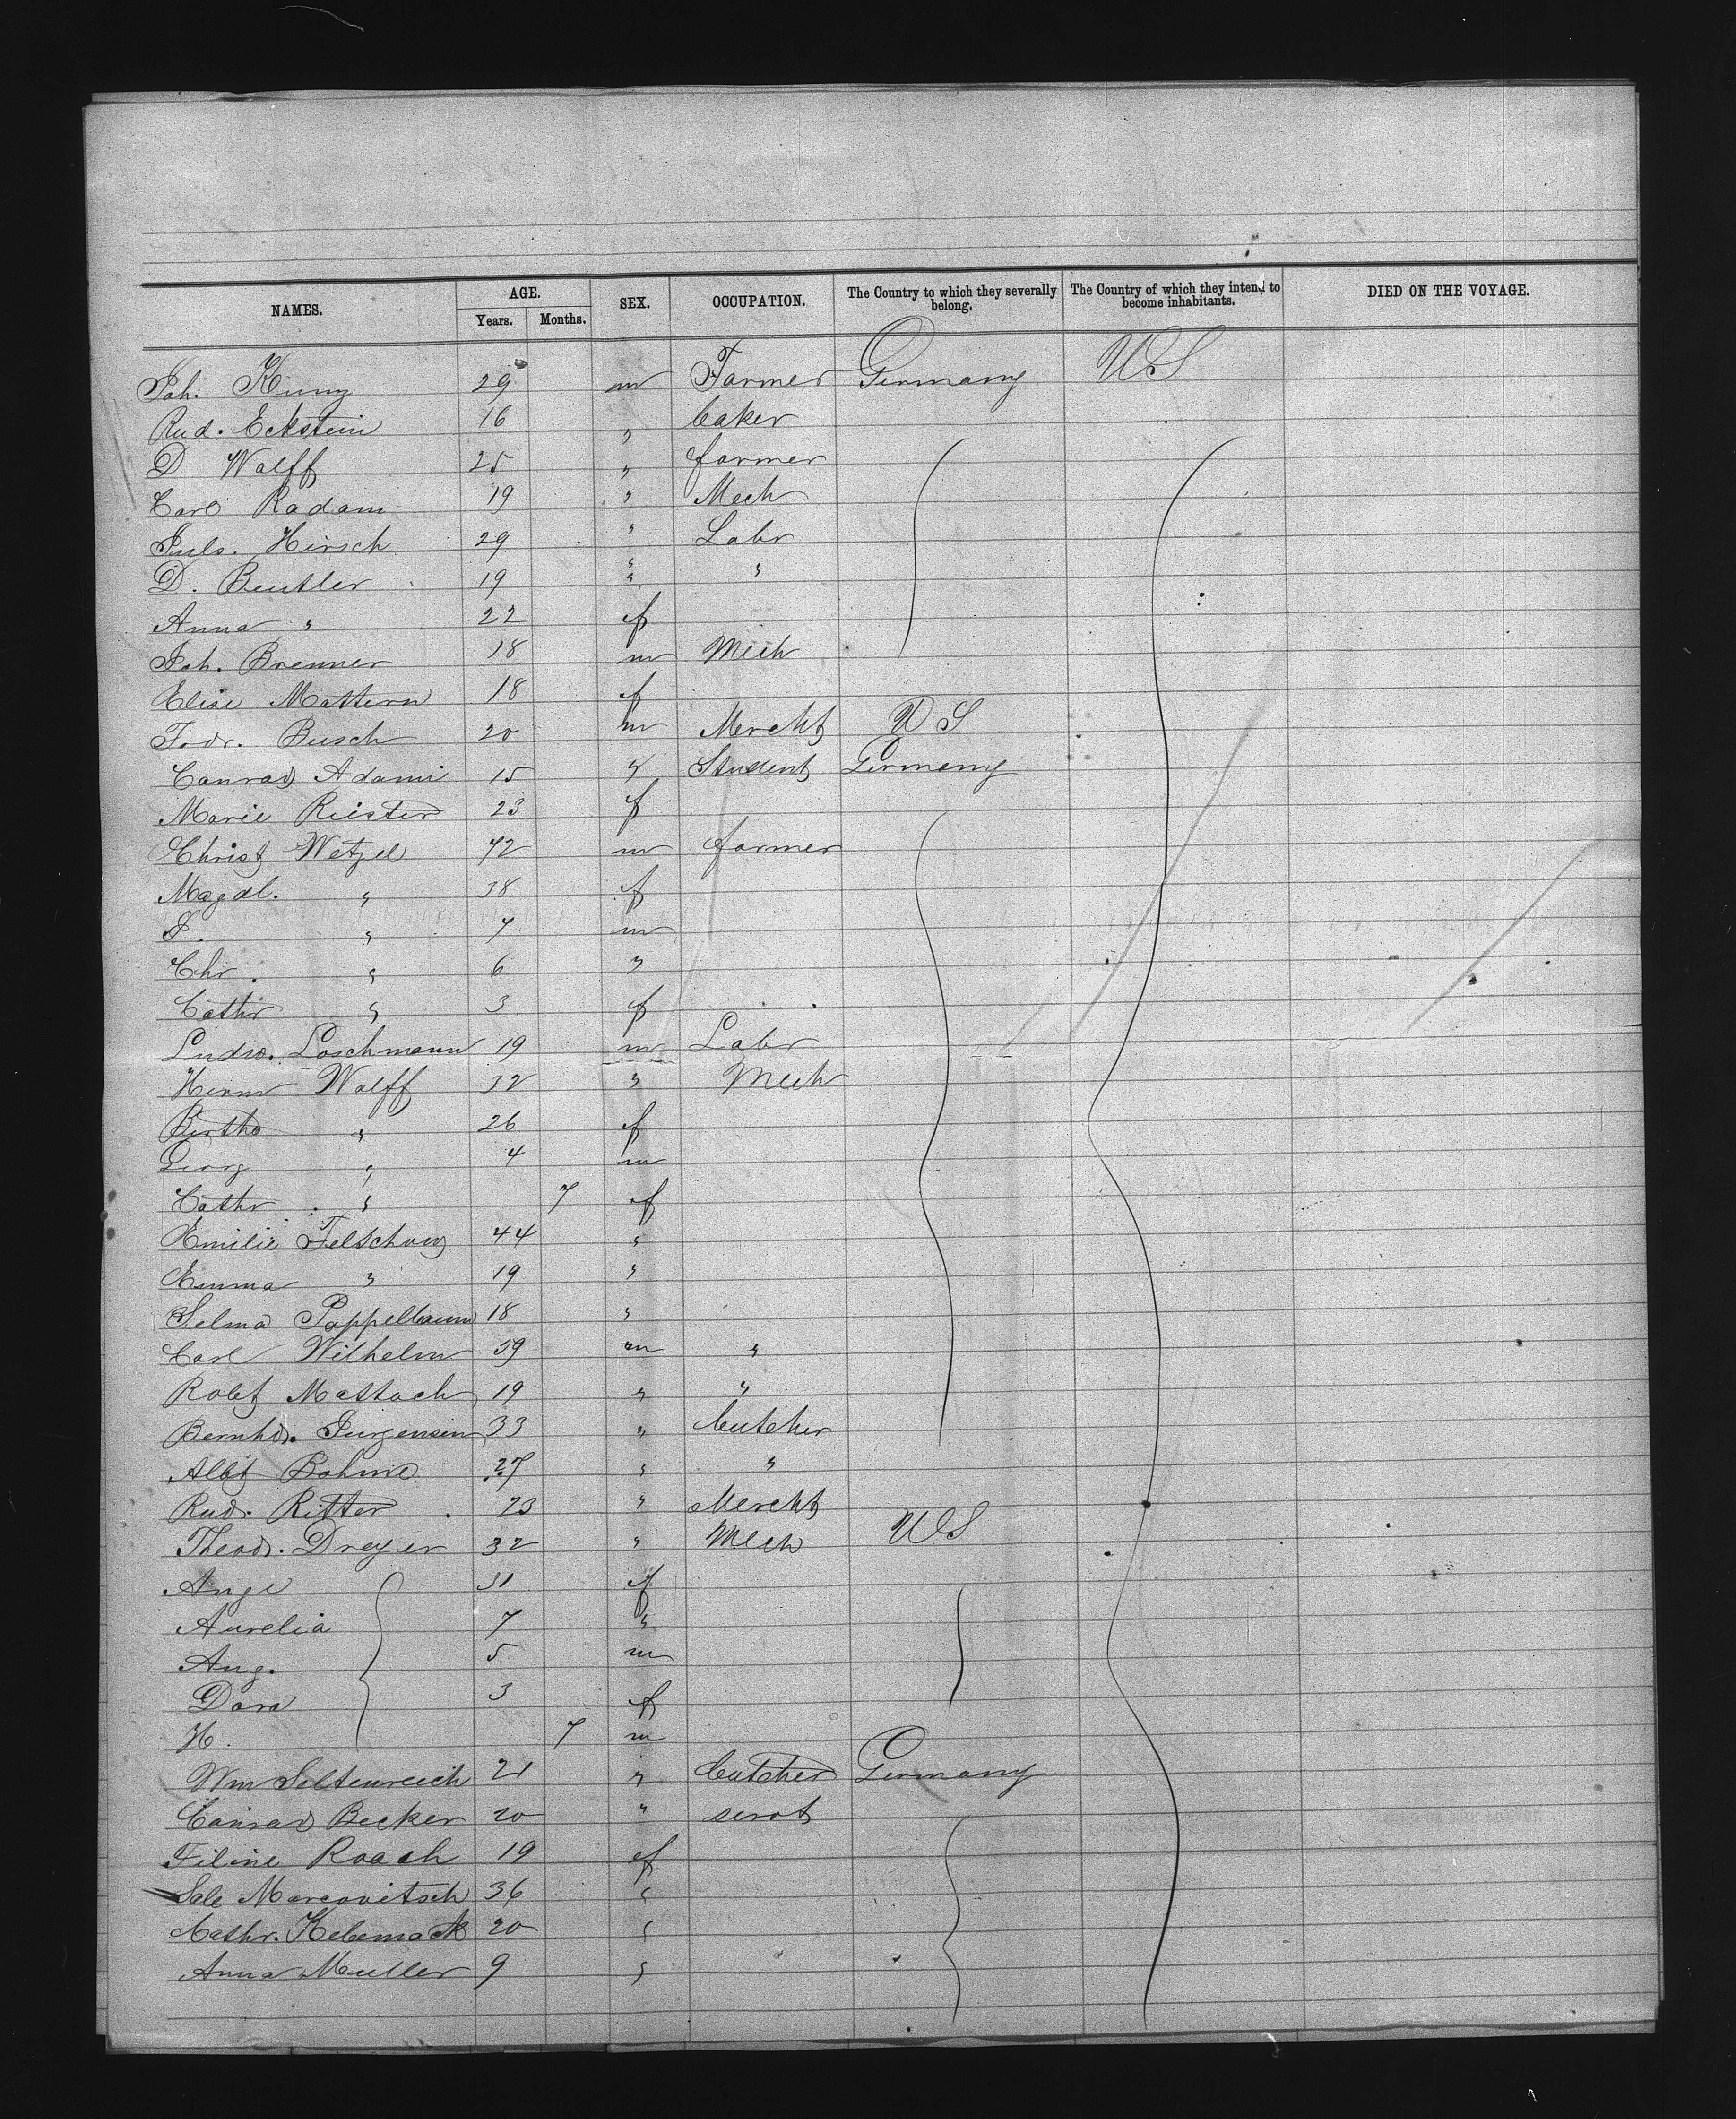 NAMES. AGE. SEX. OCCUPATION. The Country to which they severally belong. The Country of which they intend to become inhabitants. DIED ON THE VOYAGE.
Years. Months.
Joh. Kunz 29 m Farmer Germany US
Rud. Eckstein 16 " baker
D Wolff 25 " farmer
Carl Radam 19 " Mech
Juls. Hirsch 29 " Labr
D. Beutler 19 " "
Anna " 22 f
Joh. Brenner 18 m Mech
Elise Mattern 18 f
Fedr. Busch 20 m Mercht US
Conrad Adami 15 " Student Germany
Marie Riester 23 f
Christ Wetzel 42 m farmer
Magdl. " 38 f
J. " 7 m
Chr. " 6 "
Cathr " 3 f
Ludw. Loschmann 19 m Labr
Herm Wolff 32 " Mech
Bertha " 26 f
Georg " 4 m
Cathr " 7 f
Emilie 44 "
Emma " 19 "
Selma Pappelbaum 18 "
Carl Wilhelm 59 m "
Robt Mattach 19 " "
Bernhd. Jurgensen 33 " butcher
Albt Bohme 27 " "
Rud. Ritter 23 " Mercht
Theod. Dreyer 32 " Mech US
Ange 31 f
Aurelia 7 "
Aug. 5 m
Dora 3 f
H. 7 m
Wm Seltenreich 21 " butcher Germany
Conrad Becker 20 " servt
Filine Roach 19 f
Sale Marcovitsch 36 "
Cathr. Kebemack 20 "
Anna Muller 9 "